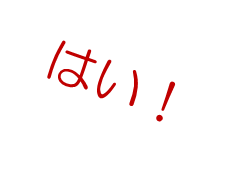 はい！